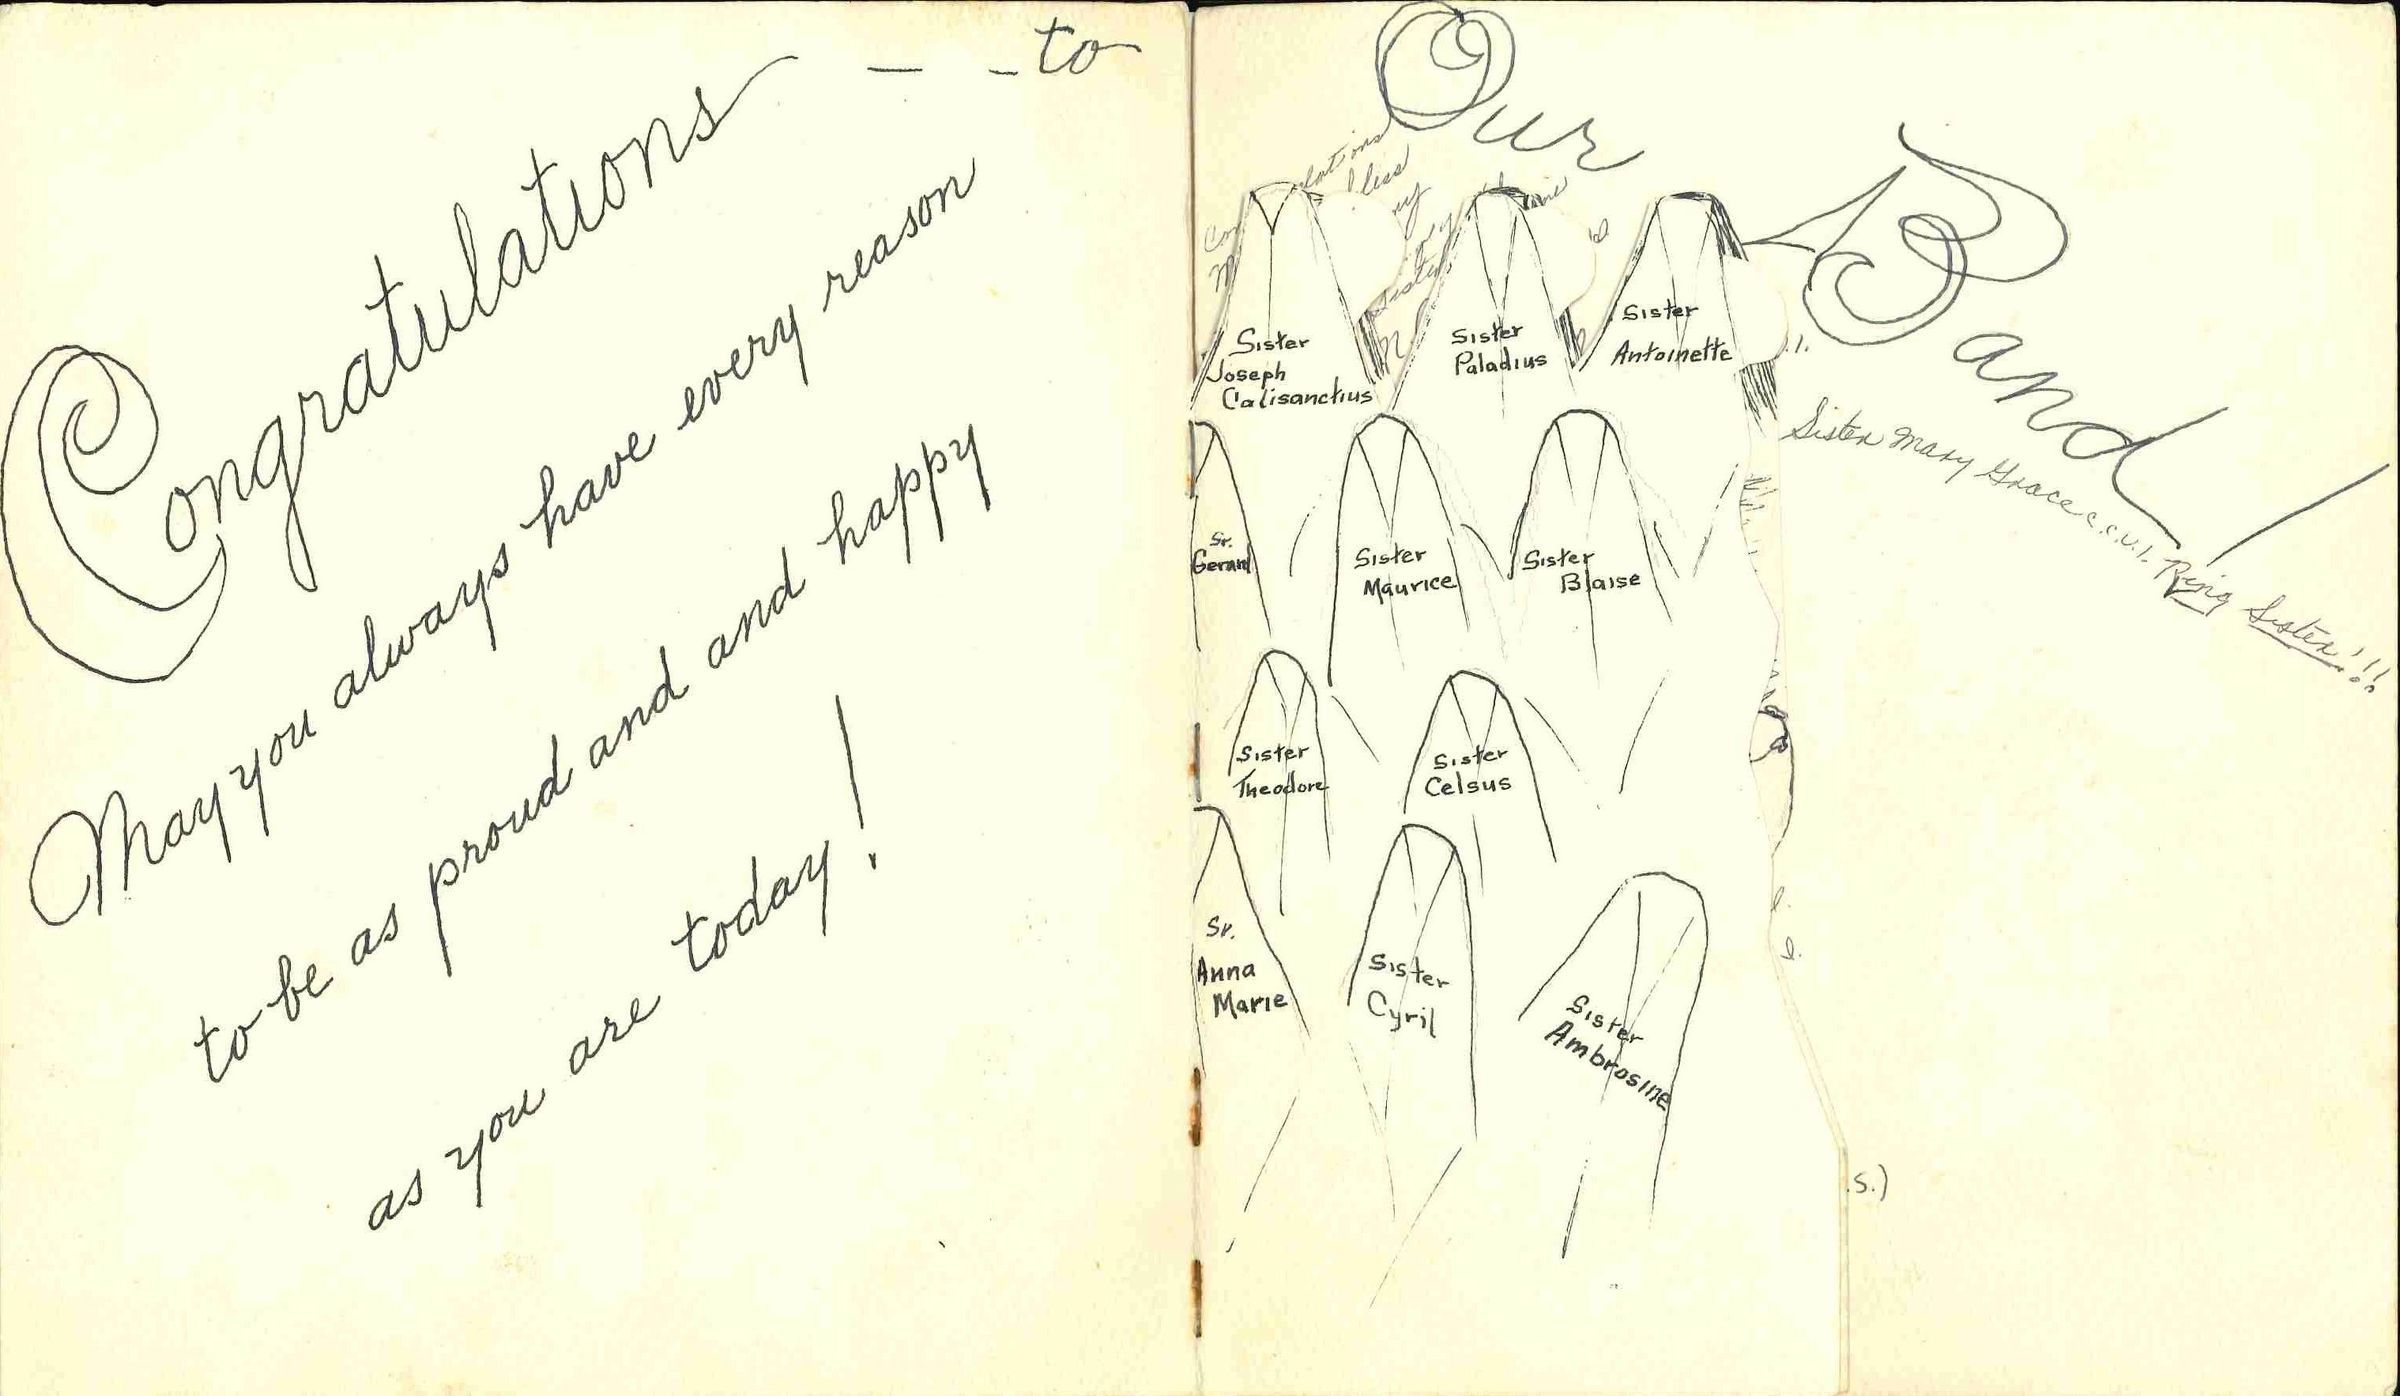 Congratulations — - to
May you always have every reason
to be as proud and and happy
as you are today!
Our
Band!
Sister
Joseph
Calisanctius
Sister
Paladius
Sister
Antoinette
Sister Mary Grace c.c.v.i. Ring Sister!!!
Sr.
Gerard
Sister
Maurice
Sister
Blaise
Sister
Theodore
Sister
Celsus
Sr.
Anna
Marie
Sister
Cyril
Sister
Ambrosine
.s.)